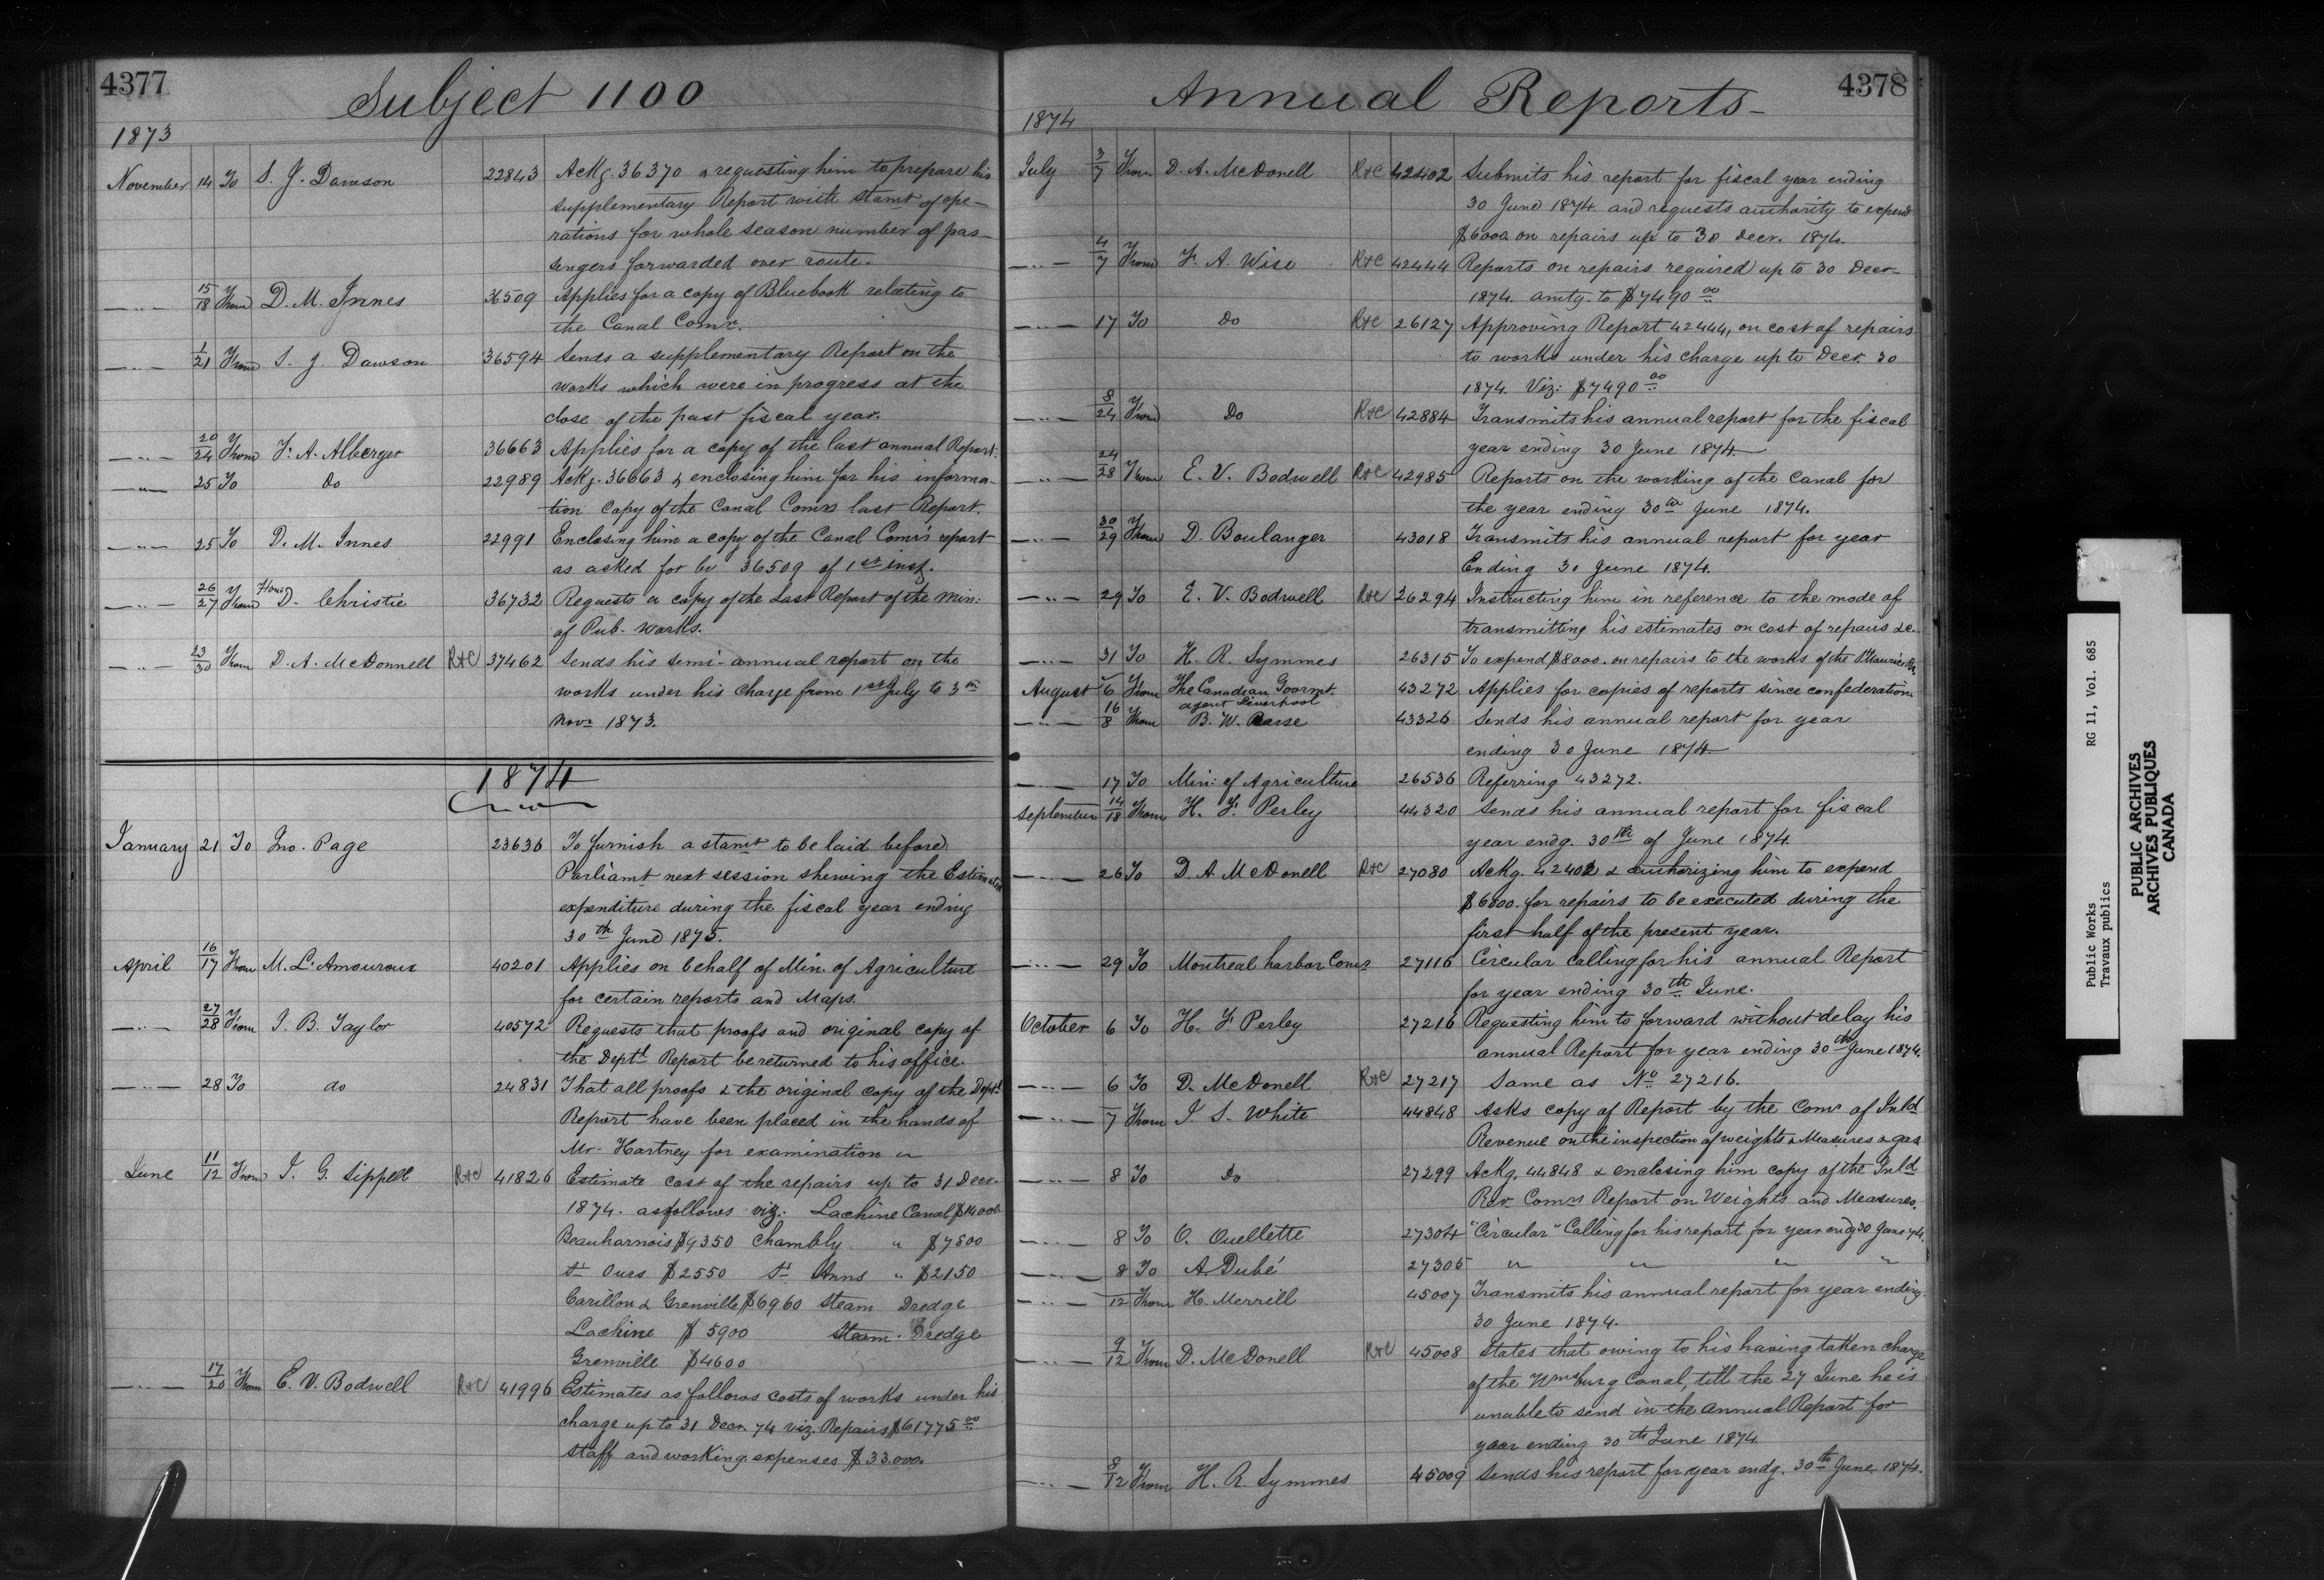 4377
Subject 1100
1873
November 14 To S. J. Dawson 22843 Ackg. 36370 & requesting him to prepare his
supplementary Report with stamt of ope-
rations for whole season number of pas-
sengers forwarded over route.
—"— 15/18 From D. M. Innes 36509 Applies for a copy of Bluebook relating to
the Canal Comr.
—"— 1/21 From S. J. Dawson 36594 Sends a supplementary Report on the
works which were in progress at the
close of the past fiscal year.
—"— 20/24 From F. A. Alberger 36663 Applies for a copy of the last annual Report.
—"— 25 To do 22989 Ackg. 36663 & enclosing him for his informa-
tion copy of the Canal Comrs last Report.
—"— 25 To D. M. Innes 22991 Enclosing him a copy of the Canal Comr's report
as asked for by 36509 of 1st inst.
—"— 26/27 From Honr D. Christie 36732 Requests a copy of the Last Report of the Min:
of Pub. Works.
—"— 23/30 From D. A. McDonnell R+C 37462 Sends his semi-annual report on the
works under his charge from 1st July to 3rd
Novr 1873.
1874
January 21 To Jno. Page 23636 To furnish a stamt to be laid before
Parliamt next session shewing the Estimated
expenditure during the fiscal year ending
30th June 1875.
April 16/17 From M. L. Amouroux 40201 Applies on behalf of Min. of Agriculture
for certain reports and Maps.
—"— 27/28 From I. B. Taylor 40572 Requests that proofs and original copy of
the Deptl Report be returned to his office.
—"— 28 To do 24831 That all proofs & the original copy of the Deptl
Report have been placed in the hands of
Mr. Hartney for examination
June 11/12 From J. G. Sippell R+C 41826 Estimate cost of the repairs up to 31 Decr.
1874. as follows viz: Lachine Canal $14000
Beauharnois $9350 Chambly " $7800
St Ours $2550 St Anns " $2150
Carillon & Grenville $6960 Steam Dredge
Lachine $5900 Steam Dredge
Grenville $4600
—"— 17/20 From E. V. Bodwell R+C 41996 Estimates as follows costs of works under his
charge up to 31 Decr. 74 viz. Repairs $61775 00
Staff and working expenses $33.000.
4378
Annual Reports
1874
July 3/7 From D. A. McDonell R+C 42402 Submits his report for fiscal year ending
30 June 1874 and requests authority to expend
$6000. on repairs up to 30 Decr. 1874.
—"— 4/7 From F. A. Wise R+C 42444 Reports on repairs required up to 30 Decr
1874. amtg. to $7490 00
—"— 17 To Do R+C 26127 Approving Report 42444, on cost of repairs
to works under his charge up to Decr. 30
1874. Viz: $7490 00
—"— 8/24 From Do R+C 42884 Transmits his annual report for the fiscal
year ending 30 June 1874.
—"— 24/28 From E. V. Bodwell R+C 42985 Reports on the working of the canal for
the year ending 30th June 1874.
—"— 30/29 From D. Boulanger 43018 Transmits his annual report for year
Ending 30 June 1874.
—"— 29 To E. V. Bodwell R+C 26294 Instructing him in reference to the mode of
transmitting his estimates on cost of repairs &c.
—"— 31 To H. R. Symmes 26315 To expend $8000. on repairs to the works of the St Maurice Riv.
August 6 From The Canadian Govrmt. 43272 Applies for copies of reports since confederation.
agent Liverpool
—"— 16/8 From B. W. 43326 Sends his annual report for year
ending 30 June 1874.
—"— 17 To Min: of Agriculture 26536 Referring 43272.
September 14/18 From H. F. Perley 44320 Sends his annual report for fiscal
year endg. 30th of June 1874.
—"— 26 To D. A. McDonell R+C 27080 Ackg. 42402 & authorizing him to expend
$6000. for repairs to be executed during the
first half of the present year.
—"— 29 To Montreal harbor Comr 27116 Circular calling for his annual Report
for year ending 30th June.
October 6 To H. F. Perley 27216 Requesting him to forward without delay his
annual Report for year ending 30th June 1874.
—"— 6 To D. McDonell R+C 27217 Same as No 27216.
—"— 7 From I. S. White 44848 Asks copy of Report by the Comr of Inld
Revenue on the inspection of weights & Measures & gas
—"— 8 To Do 27299 Ackg. 44848 & enclosing him copy of the Inld
Rev. Comrs Report on Weights and Measures.
—"— 8 To O. Ouellette 27304 "Circular" Calling for his report for year endg 30 June 74.
—"— 8 To A. Dubé 27305 " " " "
—"— 12 From H. Merrill 45007 Transmits his annual report for year ending
30 June 1874.
—"— 9/12 From D. McDonell R+C 45008 States that owing to his having taken charge
of the Wmsburg Canal, till the 27 June he is
unable to send in the Annual Report for
year ending 30th June 1874.
—"— 8/12 From H. R. Symmes 45009 Sends his report for year endg. 30th June 1874.
Public Works RG 11, Vol. 685
Travaux publics
PUBLIC ARCHIVES
ARCHIVES PUBLIQUES
CANADA